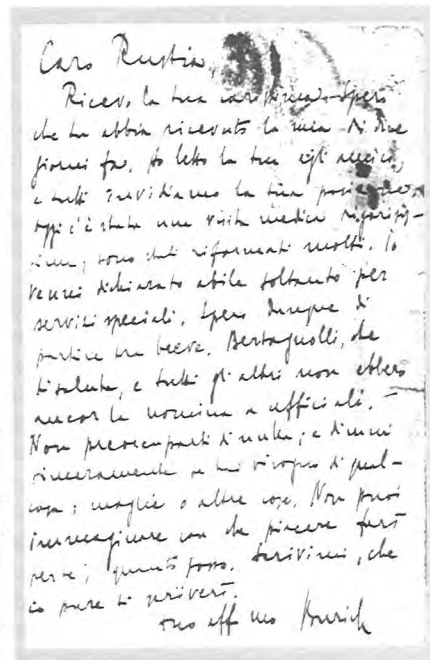 Caro Rustia,
Ricevo la tua carissima. Spero
che tu abbia ricevuto la mia di due
giorni fa. Ho letto la tua agli amici,
e tutti invidiamo la tua posizione.
Oggi c'è stata una visita medica rigorosis-
sima; sono stati riformati molti. Io
venni dichiarato abile soltanto per
servizi speciali. Spero dunque di
partire tra breve. Bertagnolli, che
ti saluta, e tutti gli altri non ebbero
ancor la nomina a ufficiali. –
Non preoccuparti di nulla; e dimmi
sinceramente se hai bisogno di qual-
cosa; maglie o altre cose. Non puoi
immaginare con che piacere farò
per te, quanto posso. Scrivimi, che
io pure ti scriverò.
tuo aff mo